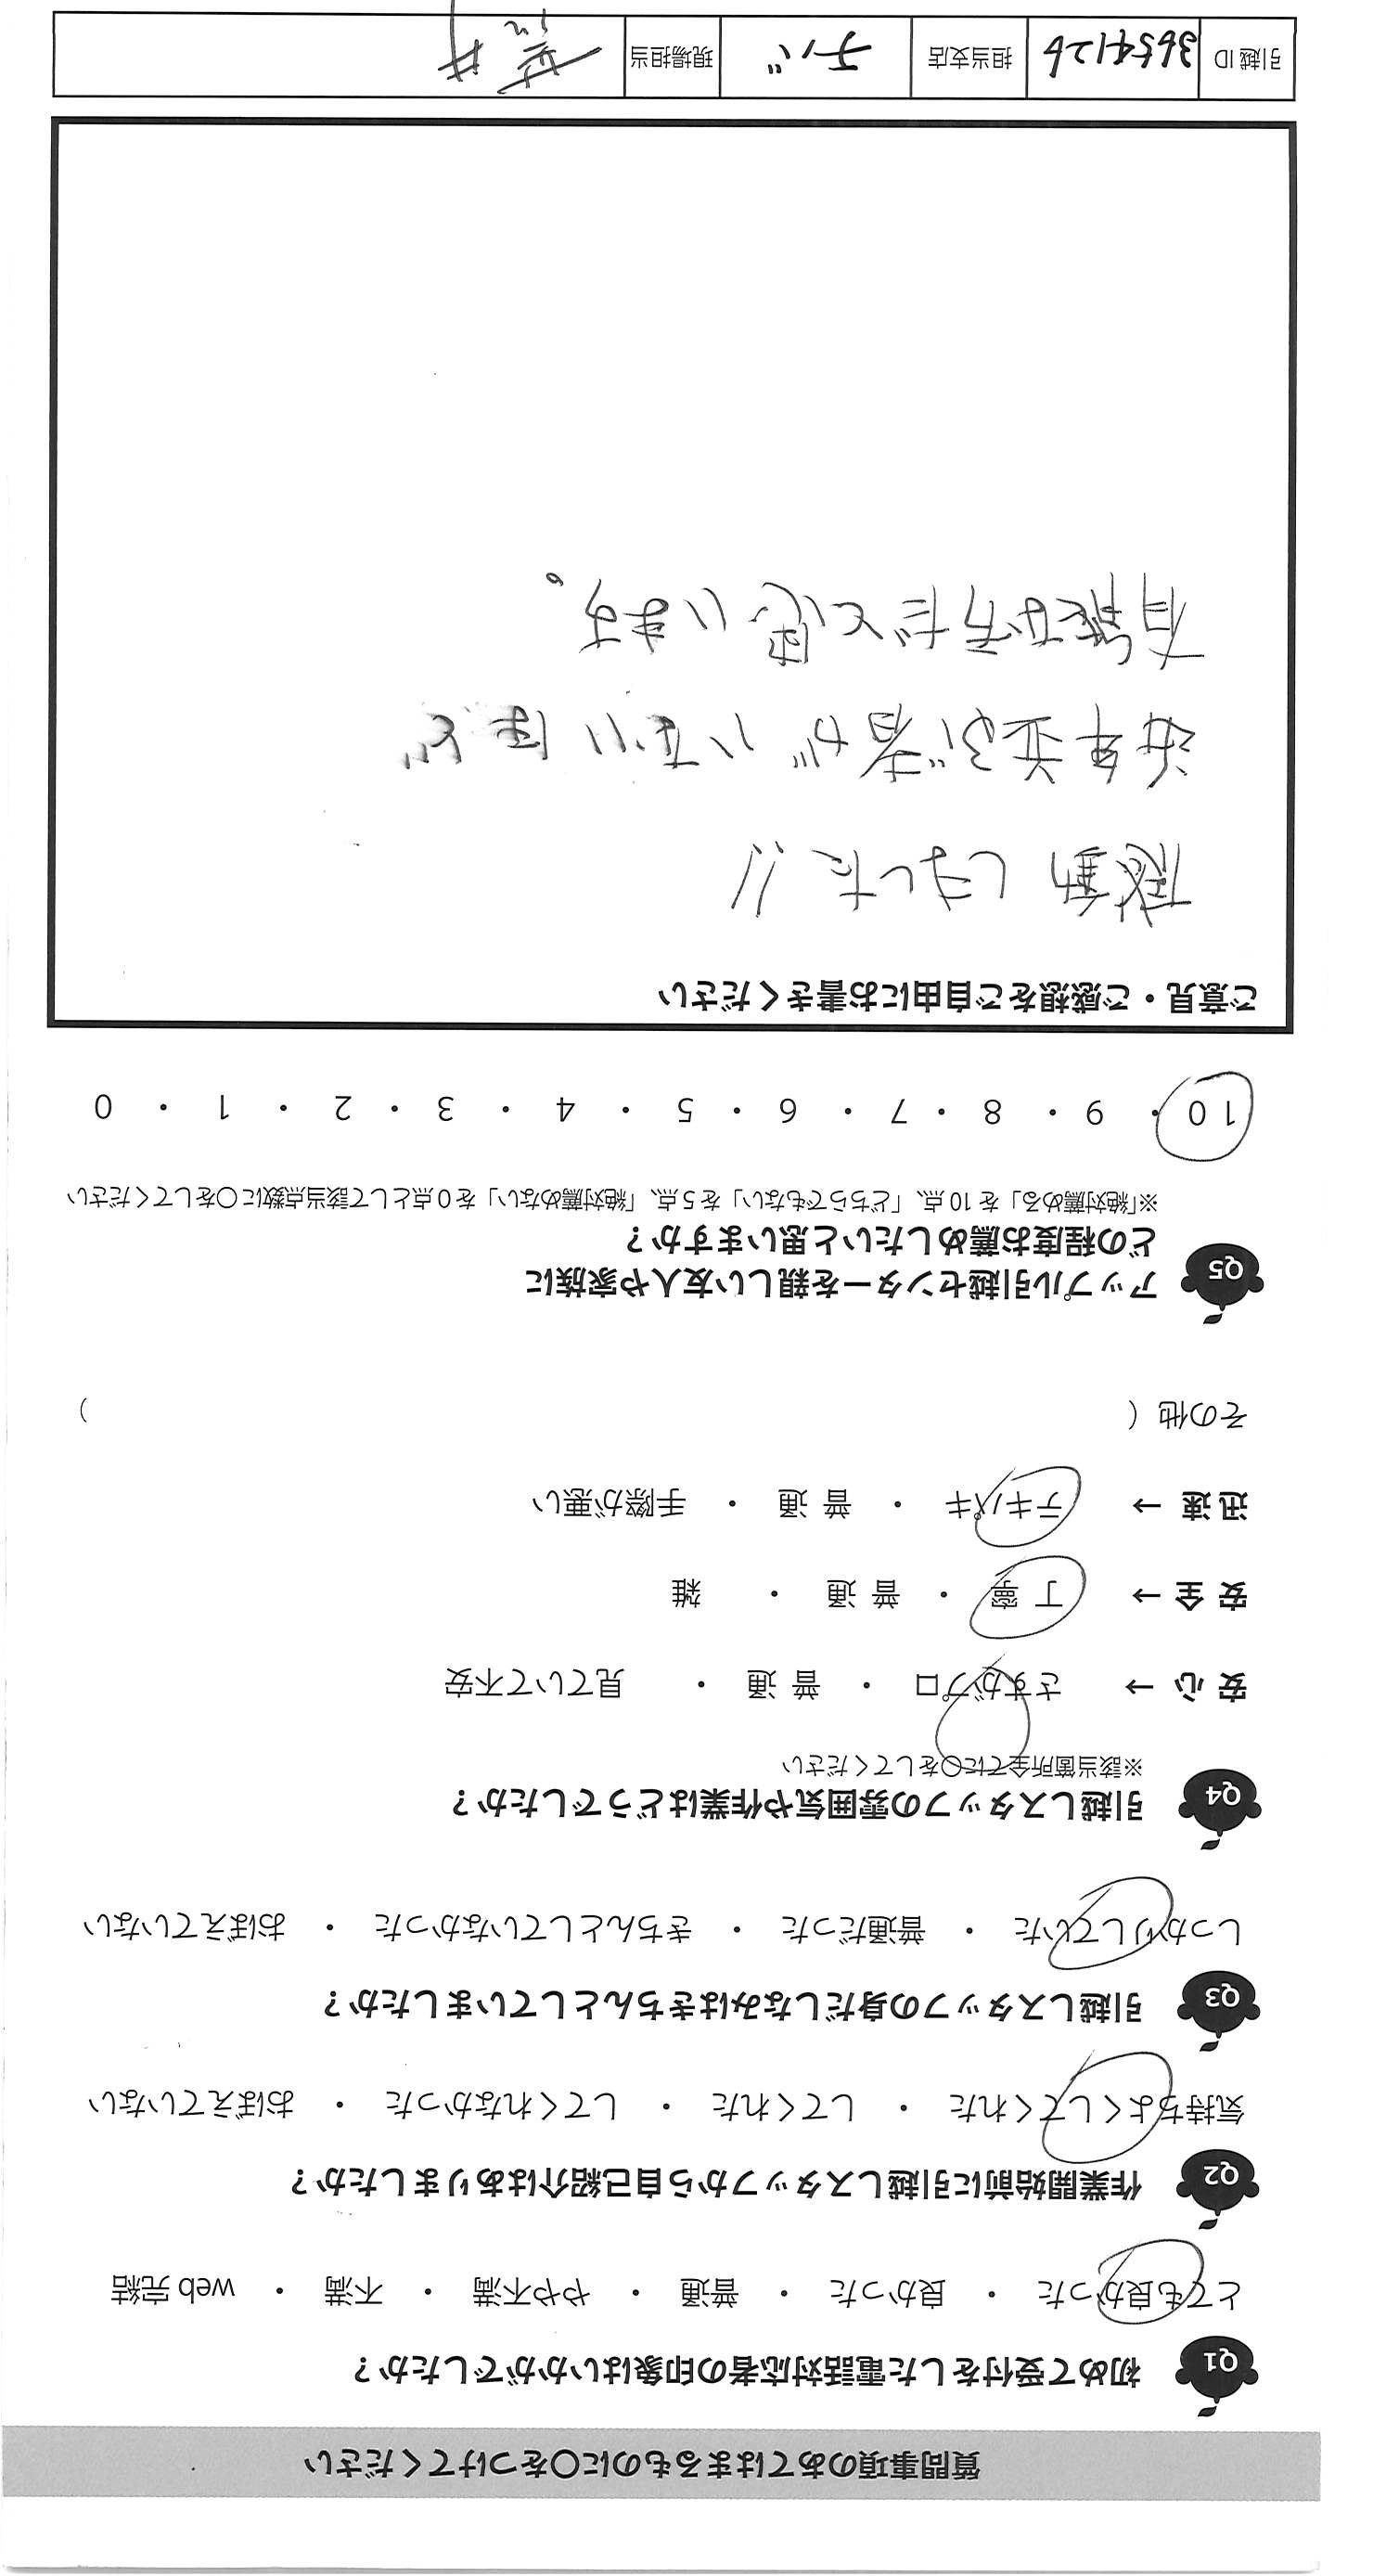 質問事項のあてはまるものに〇をつけてください
Q1 初めて受付をした電話対応者の印象はいかがでしたか？
とても良かった ・ 良かった ・ 普通 ・ やや不満 ・ 不満 ・ web 完結
Q2 作業開始前に引越しスタッフから自己紹介はありましたか？
気持ちよくしてくれた ・ してくれた ・ してくれなかった ・ おぼえていない
Q3 引越しスタッフの身だしなみはきちんとしていましたか？
しっかりしていた ・ 普通だった ・ きちんとしていなかった ・ おぼえていない
Q4 引越しスタッフの雰囲気や作業はどうでしたか？
※該当箇所全てに〇をしてください
安 心 → さすがプロ ・ 普 通 ・ 見ていて不安
安 全 → 丁 寧 ・ 普 通 ・ 雑
迅 速 → テキパキ ・ 普 通 ・ 手際が悪い
その他（ ）
Q5 アップル引越センターを親しい友人や家族に
どの程度お薦めしたいと思いますか？
※「絶対薦める」を 10 点、「どちらでもない」を 5 点、「絶対薦めない」を 0 点として該当点数に〇をしてください
10 ・ 9 ・ 8 ・ 7 ・ 6 ・ 5 ・ 4 ・ 3 ・ 2 ・ 1 ・ 0
ご意見・ご感想をご自由にお書きください
感動しました!!
並ぶ者がいないほど
有能な方だと思います。
引越 ID 3654126 担当支店 チバ 現場担当